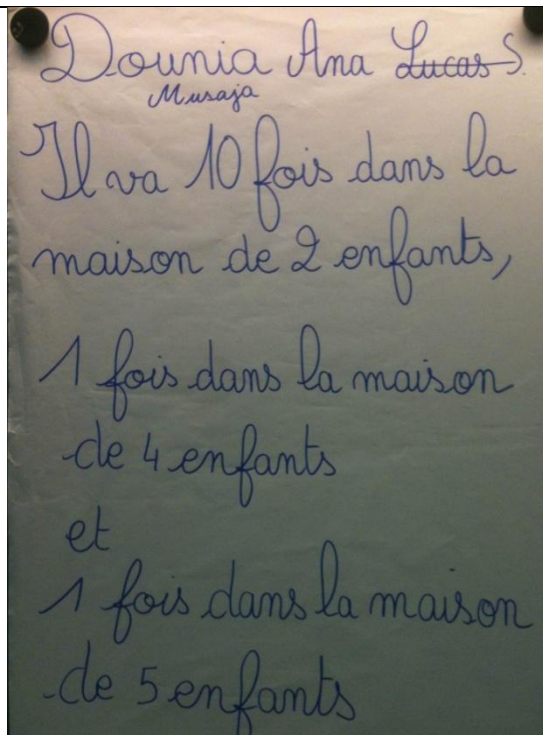 Dounia Ana Lucas S.
Musaja
Il va 10 fois dans la
maison de 2 enfants,
1 fois dans la maison
de 4 enfants
et
1 fois dans la maison
de 5 enfants